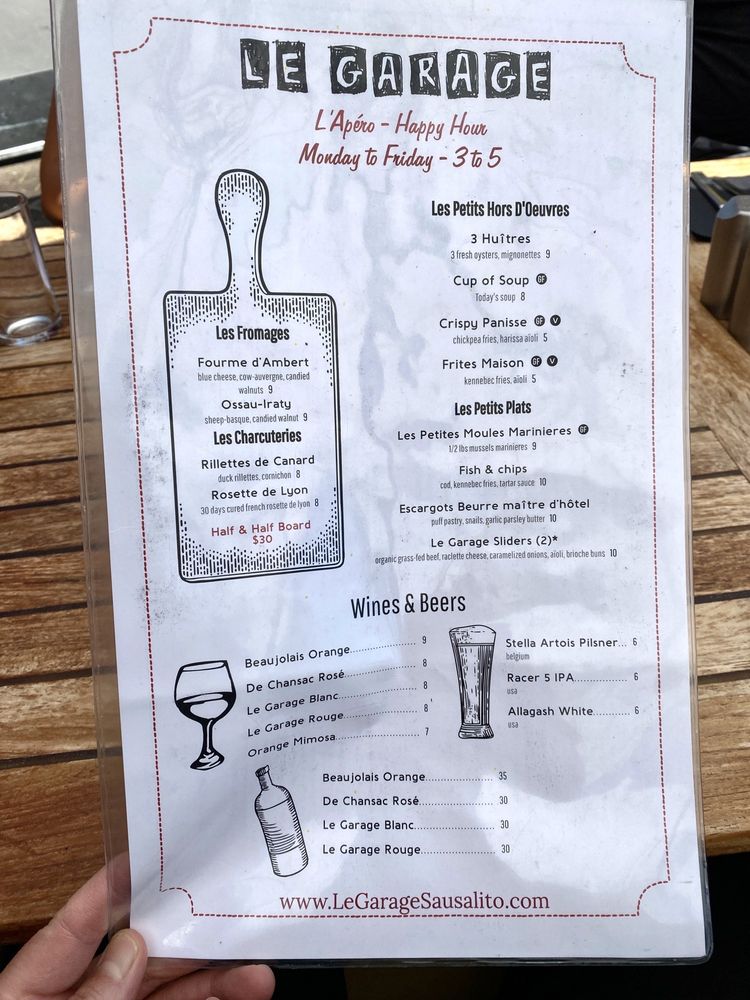 LE GARAGE
L'Apéro - Happy Hour
Monday to Friday - 3 to 5
Les Fromages
Fourme d'Ambert
blue cheese, cow-auvergne, candied
walnuts 9
Ossau-Iraty
sheep-basque, candied walnut 9
Les Charcuteries
Rillettes de Canard
duck rillettes, cornichon 8
Rosette de Lyon
30 days cured french rosette de lyon 8
Half & Half Board
$30
Les Petits Hors D'Oeuvres
3 Huîtres
3 fresh oysters, mignonettes 9
Cup of Soup GF
Today's soup 8
Crispy Panisse GF V
chickpea fries, harissa aïoli 5
Frites Maison GF V
kennebec fries, aïoli 5
Les Petits Plats
Les Petites Moules Marinieres GF
1/2 lbs mussels marinieres 9
Fish & chips
cod, kennebec fries, tartar sauce 10
Escargots Beurre maître d'hôtel
puff pastry, snails, garlic parsley butter 10
Le Garage Sliders (2)*
organic grass-fed beef, raclette cheese, caramelized onions, aïoli, brioche buns 10
Wines & Beers
Beaujolais Orange.................... 9
De Chansac Rosé..................... 8
Le Garage Blanc...................... 8
Le Garage Rouge..................... 8
Orange Mimosa....................... 7
Stella Artois Pilsner... 6
belgium
Racer 5 IPA............. 6
usa
Allagash White.......... 6
usa
Beaujolais Orange................. 35
De Chansac Rosé................... 30
Le Garage Blanc.................... 30
Le Garage Rouge................... 30
www.LeGarageSausalito.com